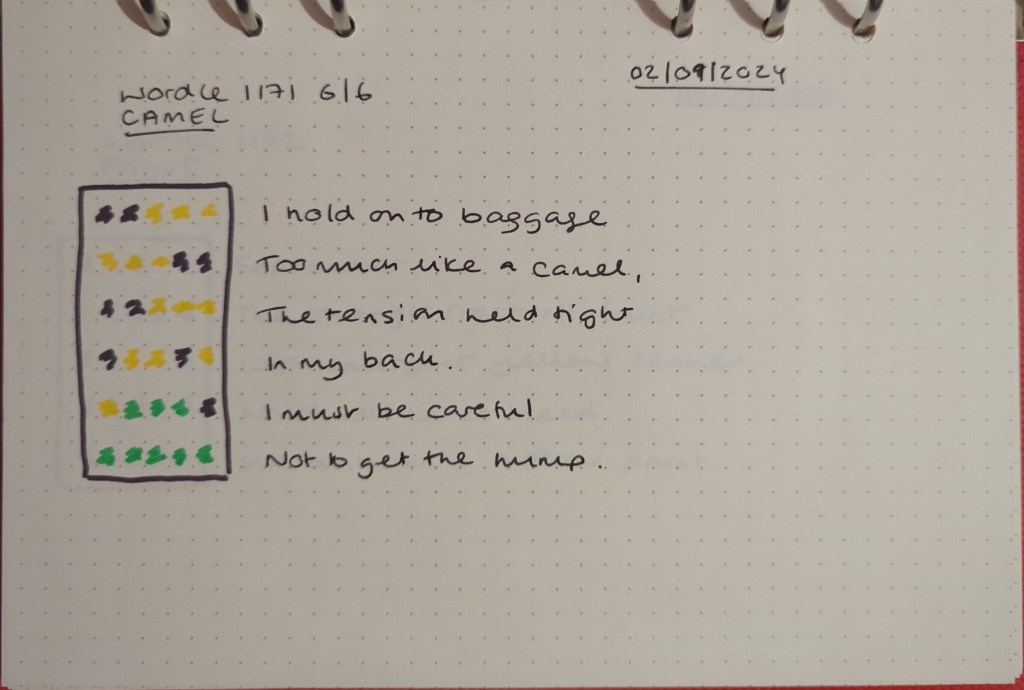 02/09/2024
Wordle 1171 6/6
CAMEL
I hold on to baggage
Too much like a camel,
The tension held tight
In my back.
I must be careful
Not to get the hump.